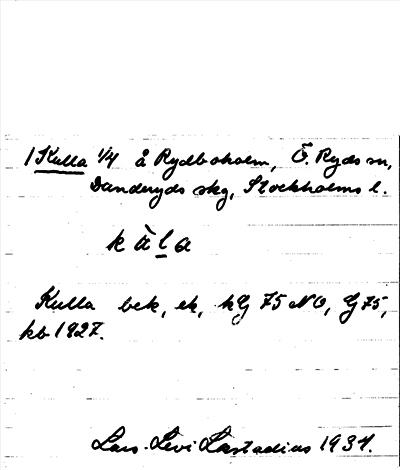 1 Kulla 1/4 å Rydboholm, Ö. Ryds sn,
Danderyds skg, Stockholms l.
k ù l a
Kulla bek, ek, kG 75 NO, G 75,
kb 1927.
Lars-Levi Læstadius 1934.